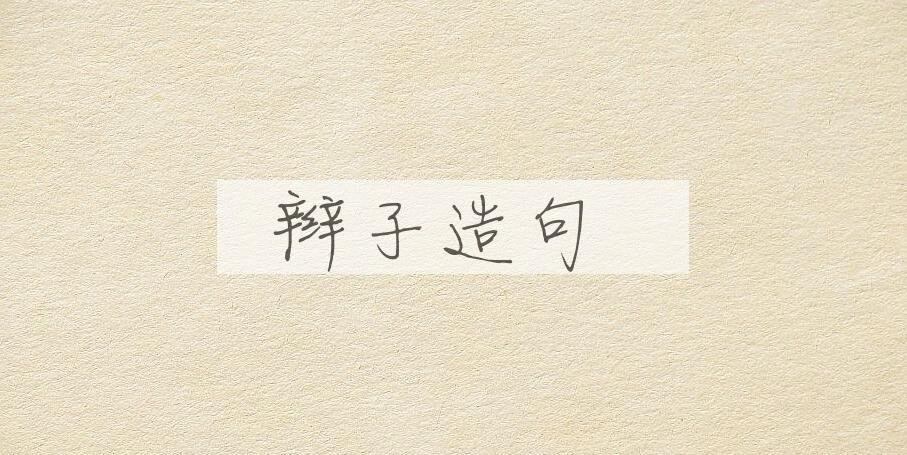 辫子造句